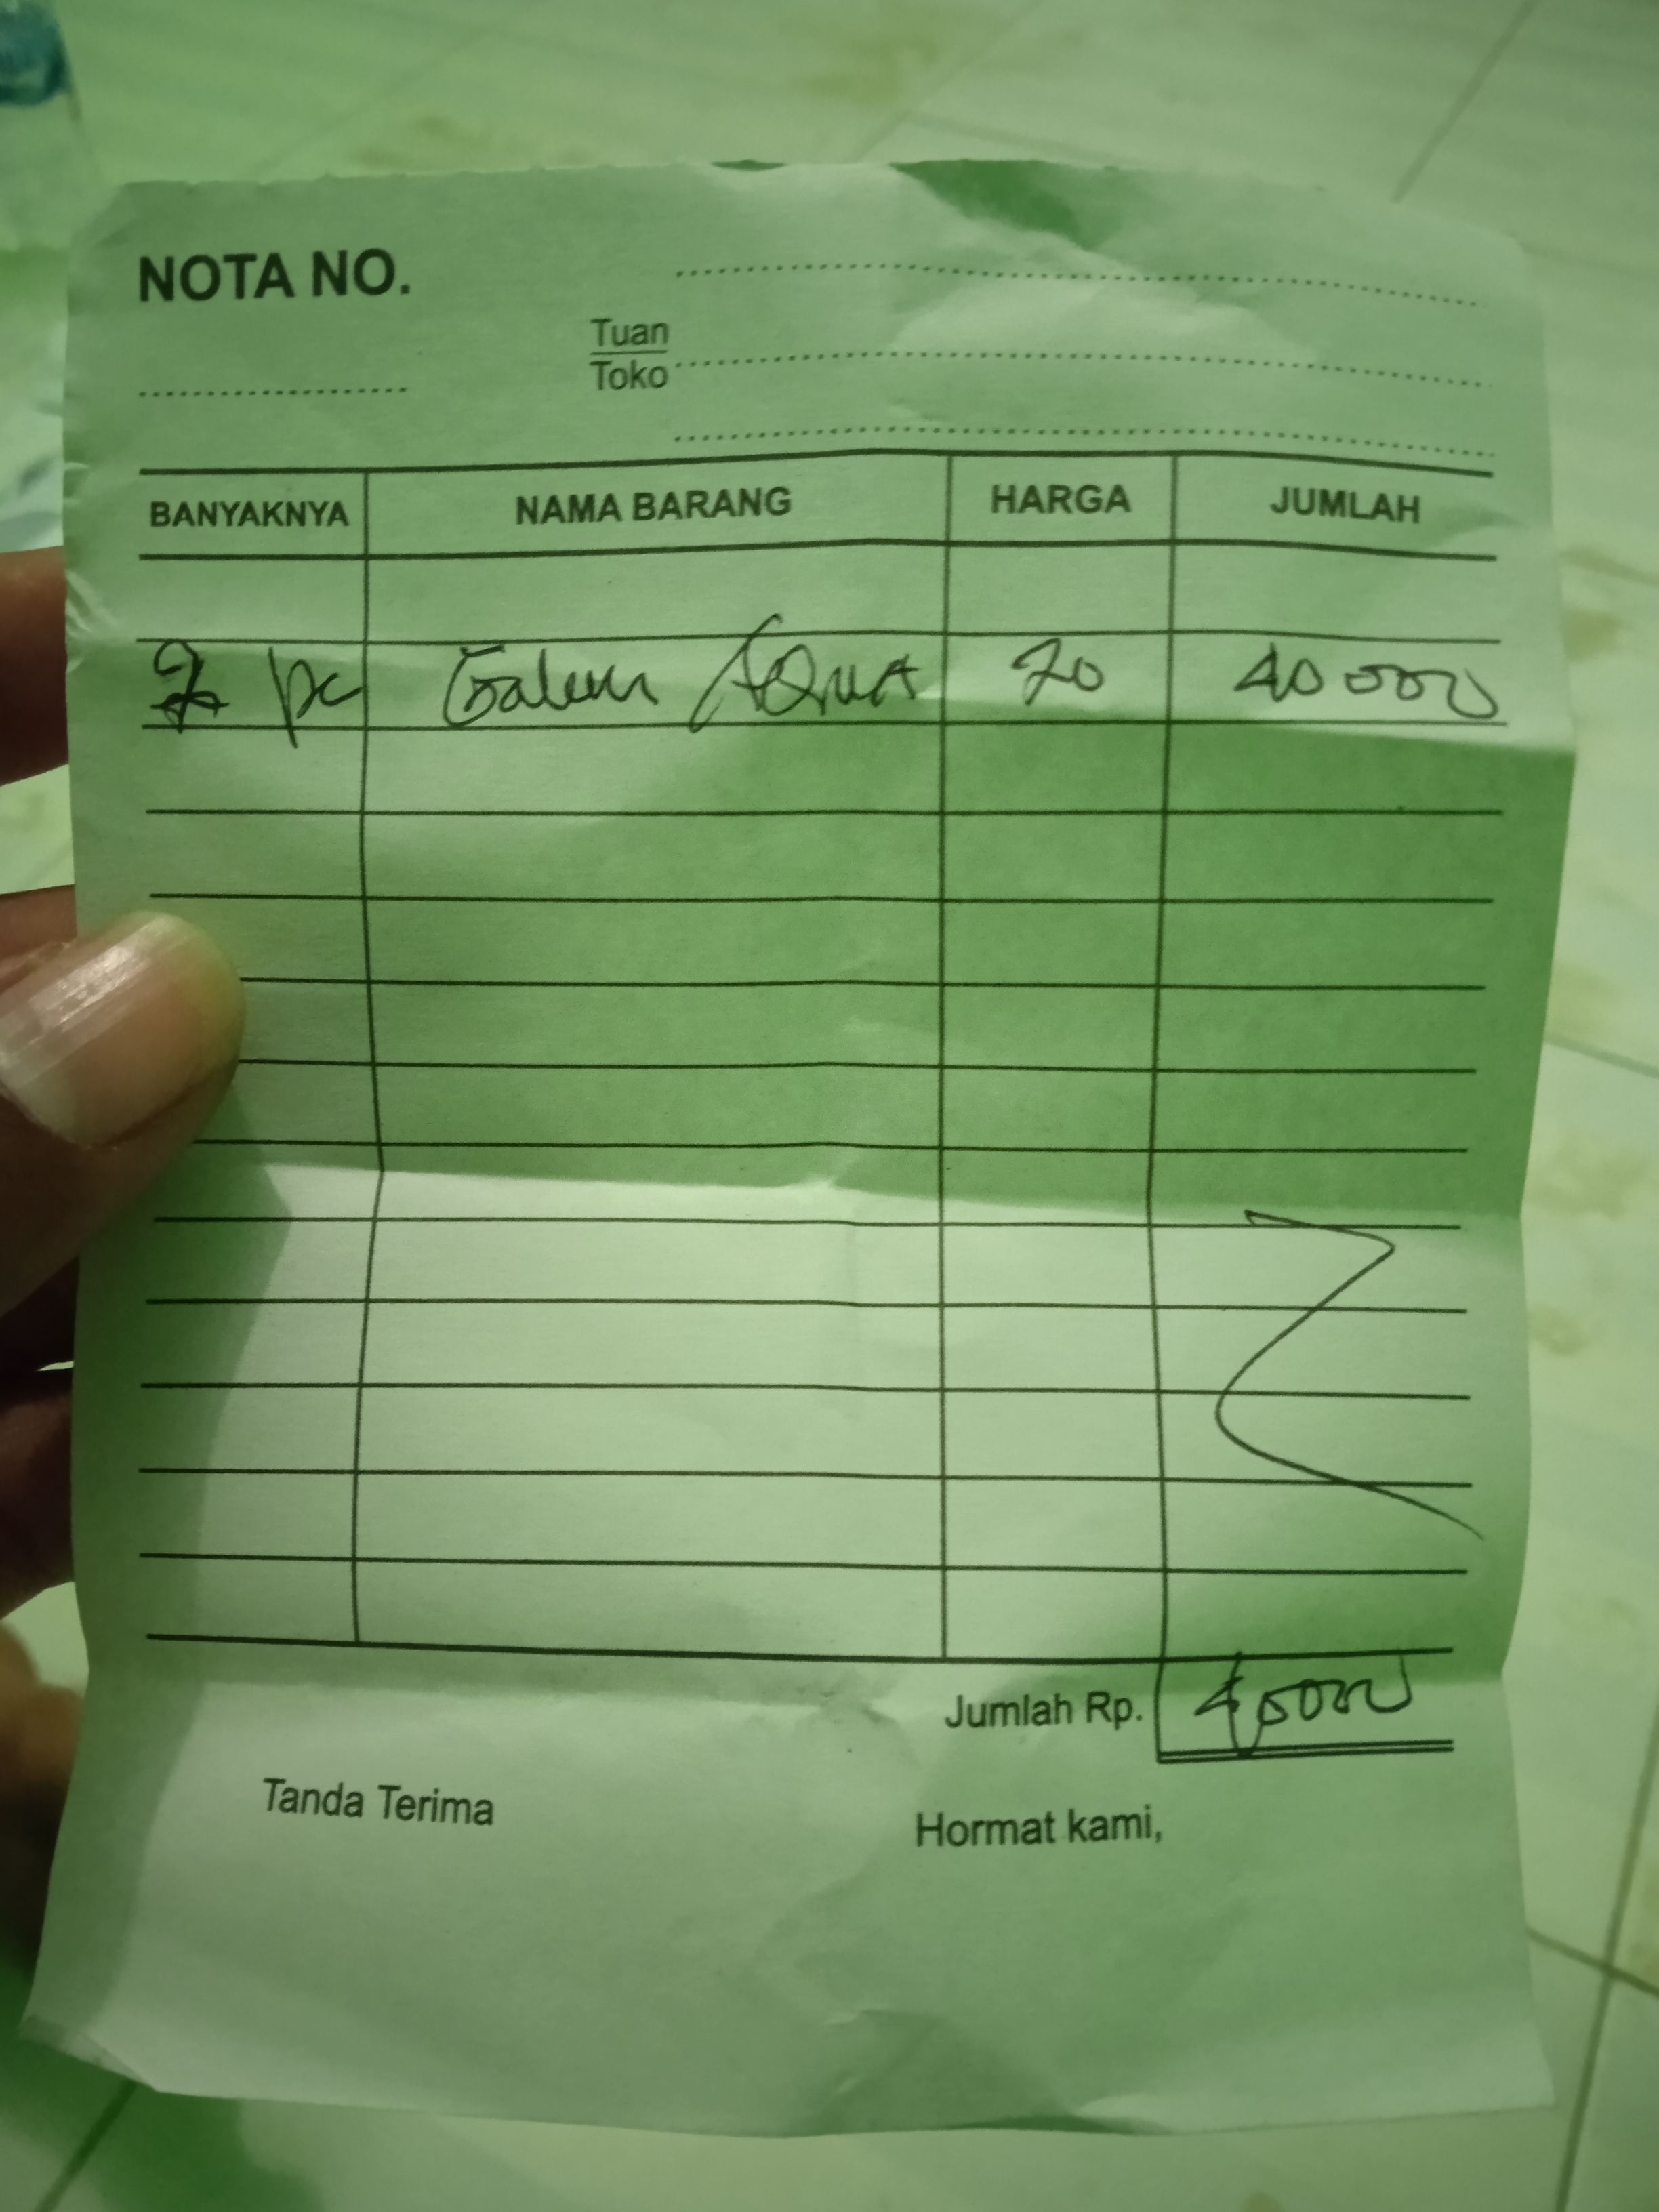 NOTA NO.
Tuan
Toko
BANYAKNYA NAMA BARANG HARGA JUMLAH
2 pc Galun AQUA 20 40000
Jumlah Rp. 40000
Tanda Terima Hormat kami,